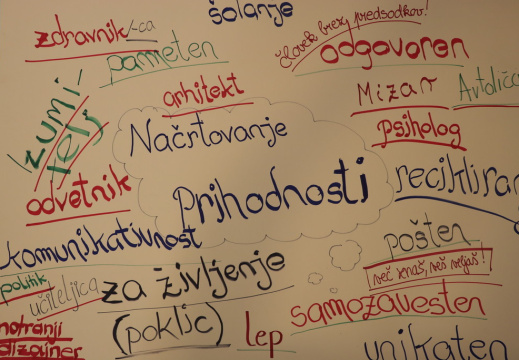 šolanje
zdravnik/-ca
človek brez predsodkov!
pameten
odgovoren
arhitekt
Mizar
izumi-
telj
Načrtovanje
psiholog
odvetnik
Prihodnosti
komunikativnost
pošten
politik
učiteljica
za življenje
več znaš, več veljaš!
samozavesten
(poklic)
lep
notranji
dizajner
unikaten